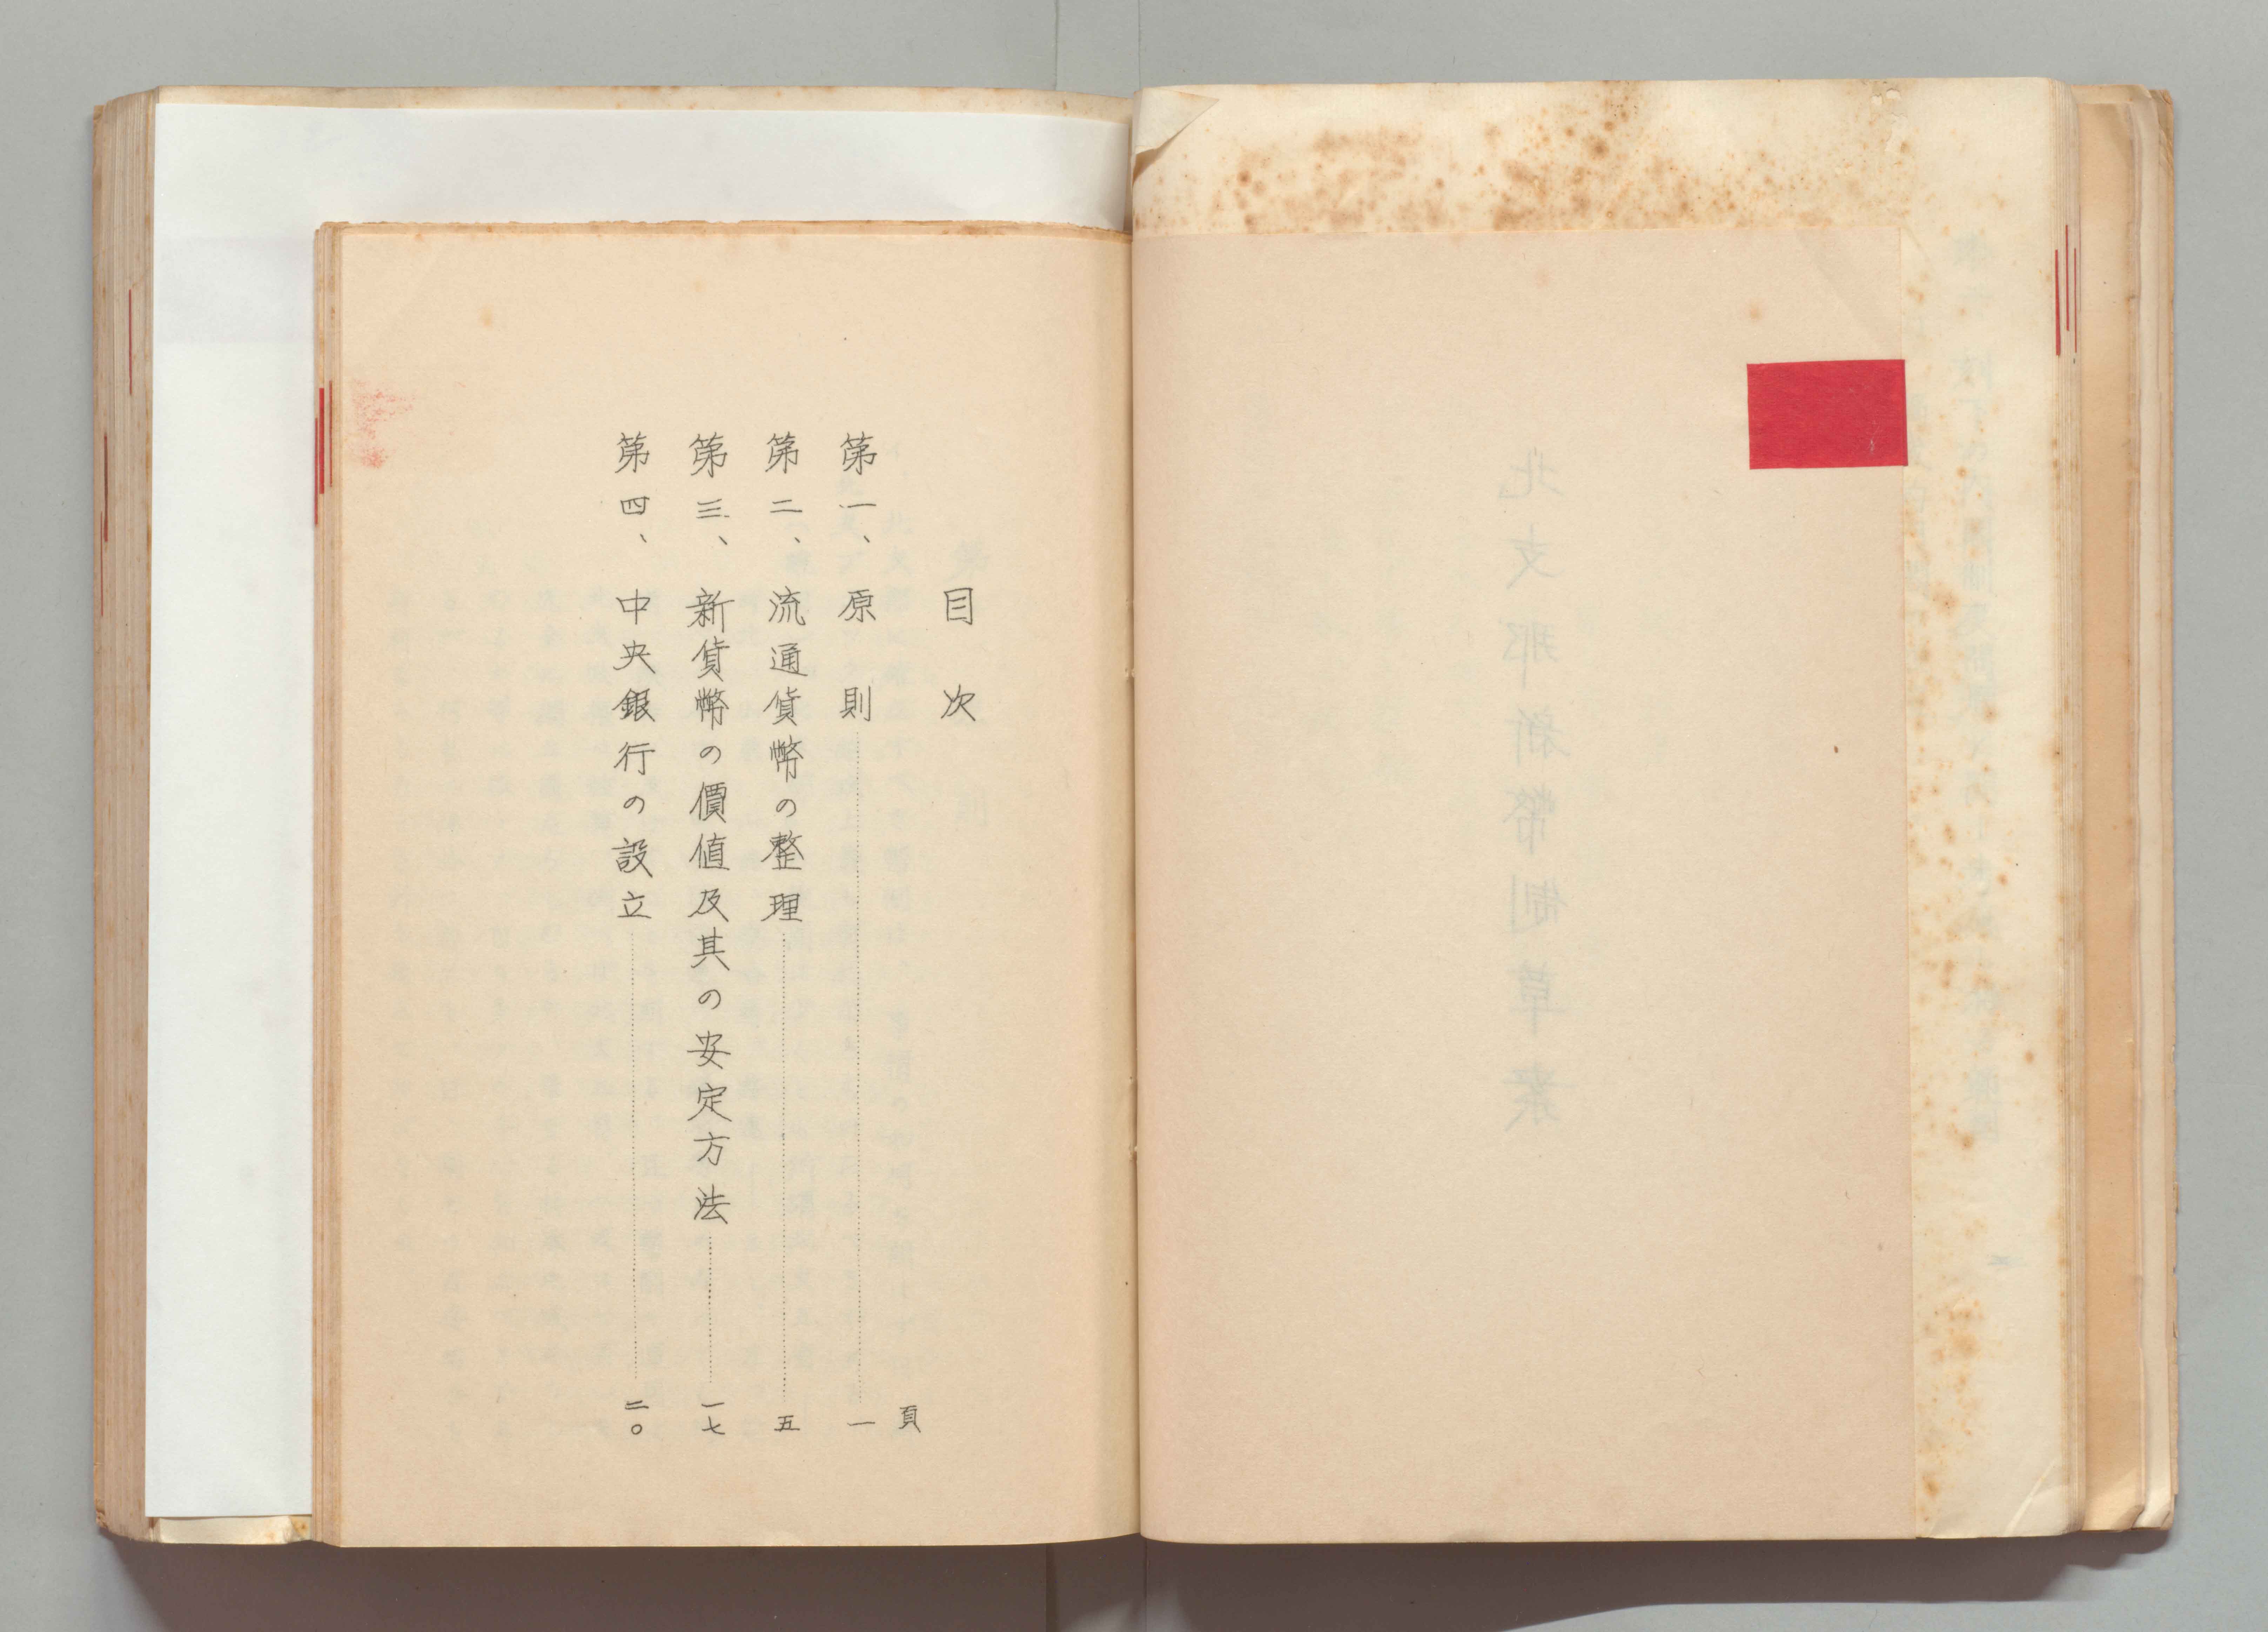 北支那新幣制草案
目次
頁
第一、原則……一
第二、流通貨幣の整理……五
第三、新貨幣の價値及其の安定方法……一七
第四、中央銀行の設立……二〇